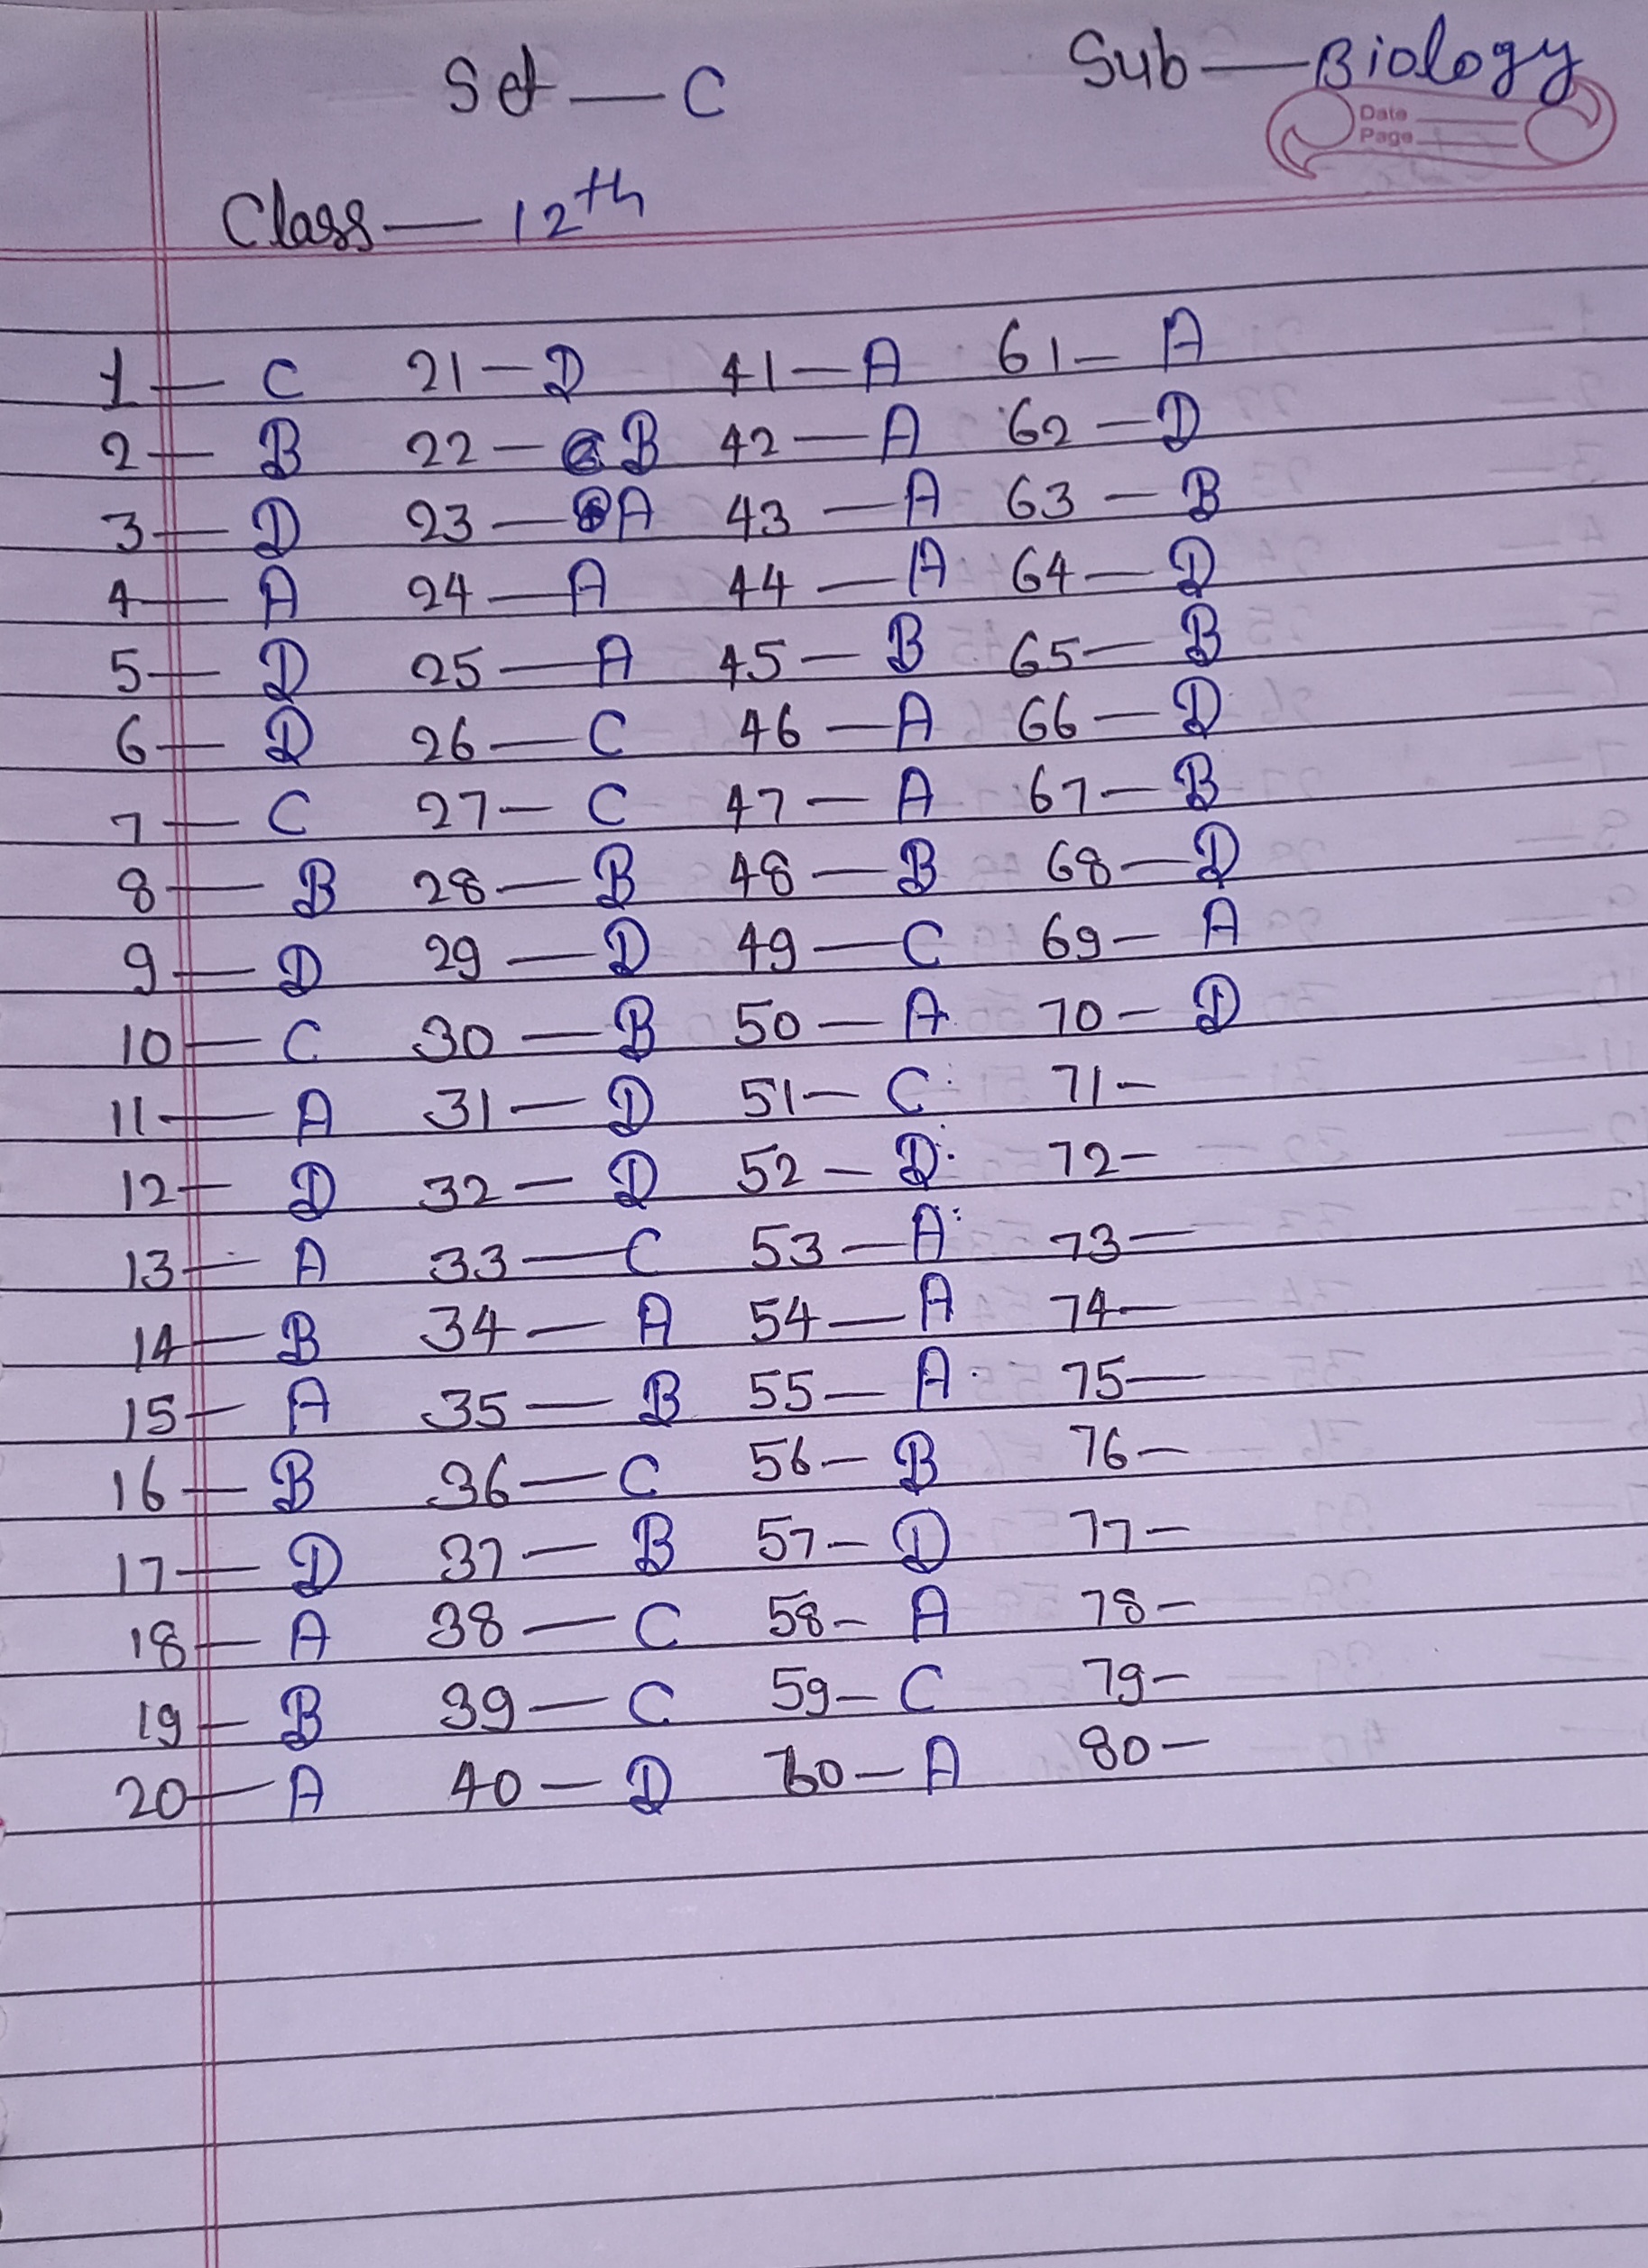 Set — C Sub — Biology
Date
Page
Class — 12th
1 — C 21 — D 41 — A 61 — A
2 — B 22 — B 42 — A 62 — D
3 — D 23 — A 43 — A 63 — B
4 — A 24 — A 44 — A 64 — D
5 — D 25 — A 45 — B 65 — B
6 — D 26 — C 46 — A 66 — D
7 — C 27 — C 47 — A 67 — B
8 — B 28 — B 48 — B 68 — D
9 — D 29 — D 49 — C 69 — A
10 — C 30 — B 50 — A 70 — D
11 — A 31 — D 51 — C 71 —
12 — D 32 — D 52 — D 72 —
13 — A 33 — C 53 — A 73 —
14 — B 34 — A 54 — A 74 —
15 — A 35 — B 55 — A 75 —
16 — B 36 — C 56 — B 76 —
17 — D 37 — B 57 — D 77 —
18 — A 38 — C 58 — A 78 —
19 — B 39 — C 59 — C 79 —
20 — A 40 — D 60 — A 80 —